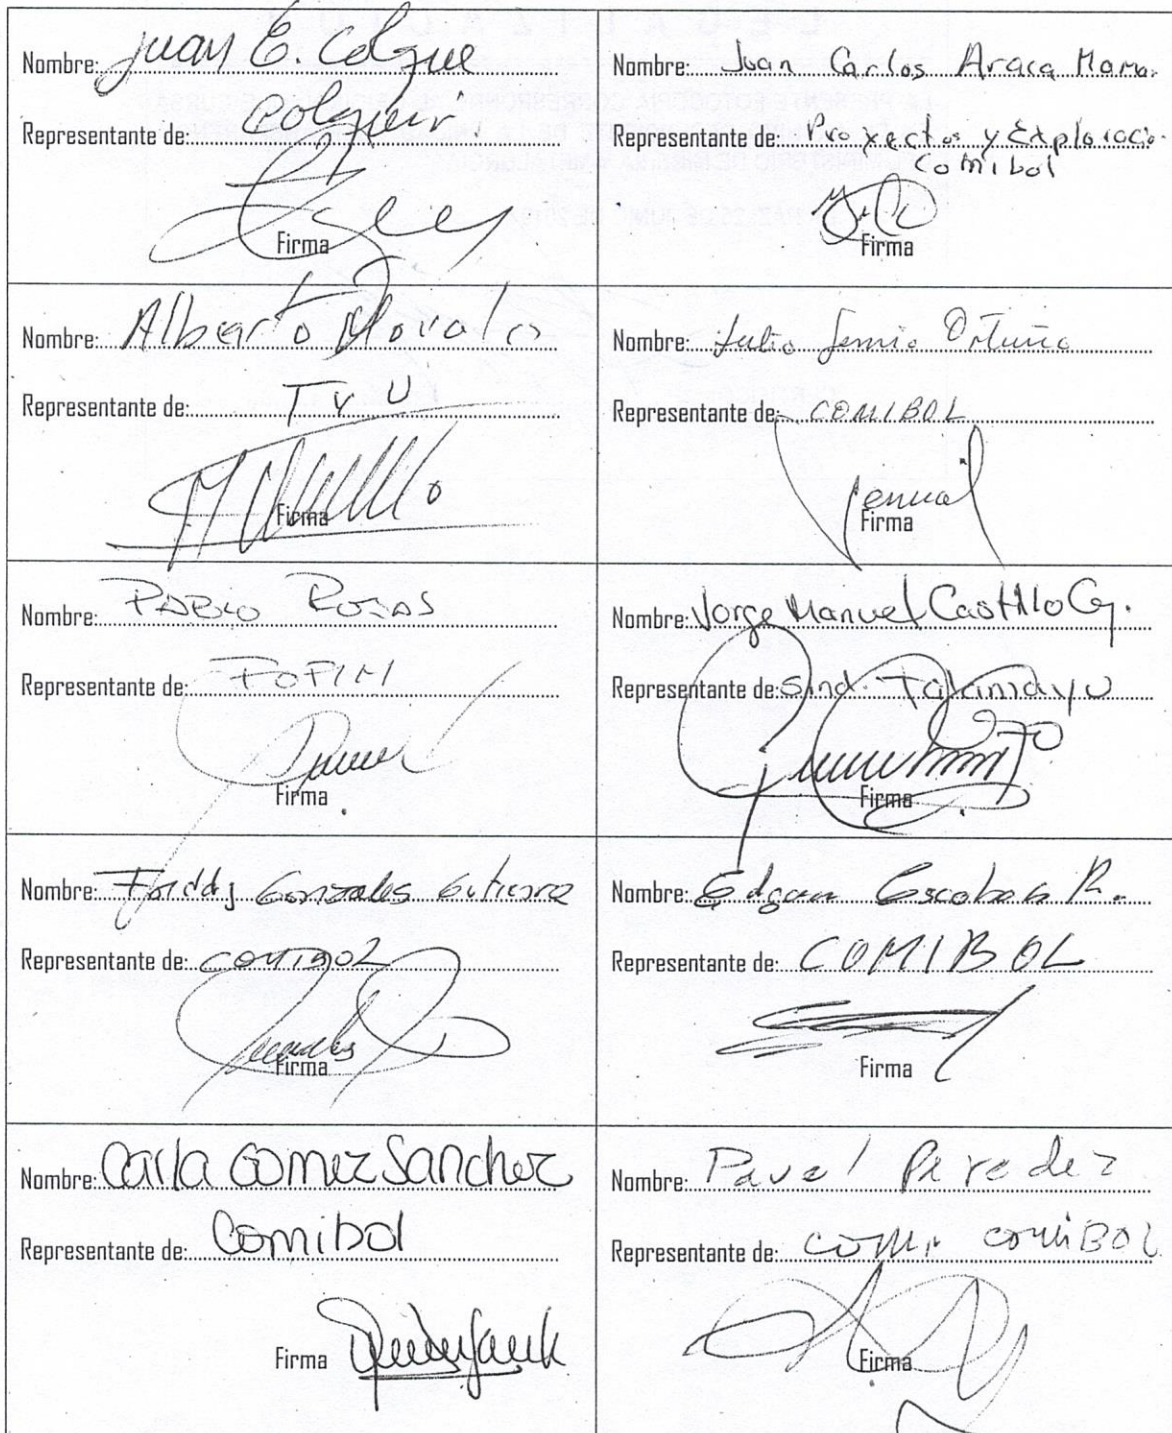 Nombre: Juan E. Colque
Representante de: Colquiri.
Firma
Nombre: Juan Carlos Araca Mama.
Representante de: Proyectos y Exploracio.
Comibol
Firma
Nombre: Alberto Morales
Representante de: T y U
Firma
Nombre: Julio Ortuño
Representante de: COMIBOL
Firma
Nombre: PABLO ROJAS
Representante de: FOFIM
Firma
Nombre: Jorge Manuel Castillo G.
Representante de: Sind.
Firma
Nombre: Freddy Gonzales Gutierrez
Representante de: COMIBOL
Firma
Nombre: Edgar Escobar R.
Representante de: COMIBOL
Firma
Nombre: Carla Gomez Sanchez
Representante de: Comibol
Firma
Nombre: Pavel Paredez
Representante de: comi comiBOL
Firma